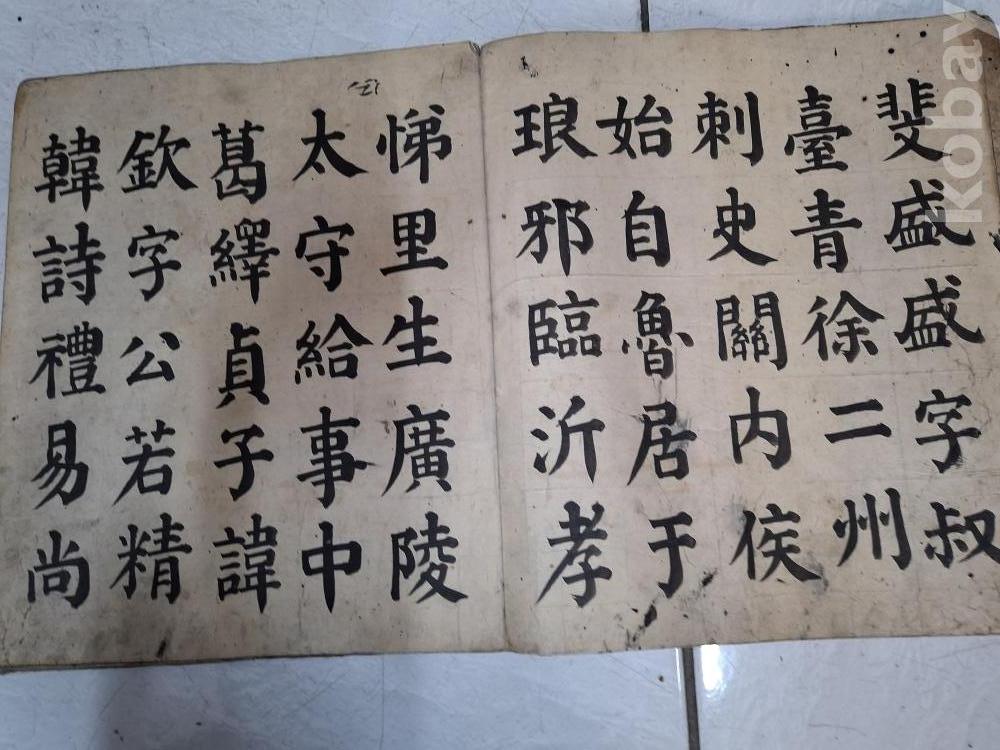 斐盛盛字叔
臺青徐二州
刺史關内侯
始自魯居于
琅邪臨沂孝
悌里生廣陵
太守給事中
葛繹貞子諱
欽字公若精
韓詩禮易尚
kobay